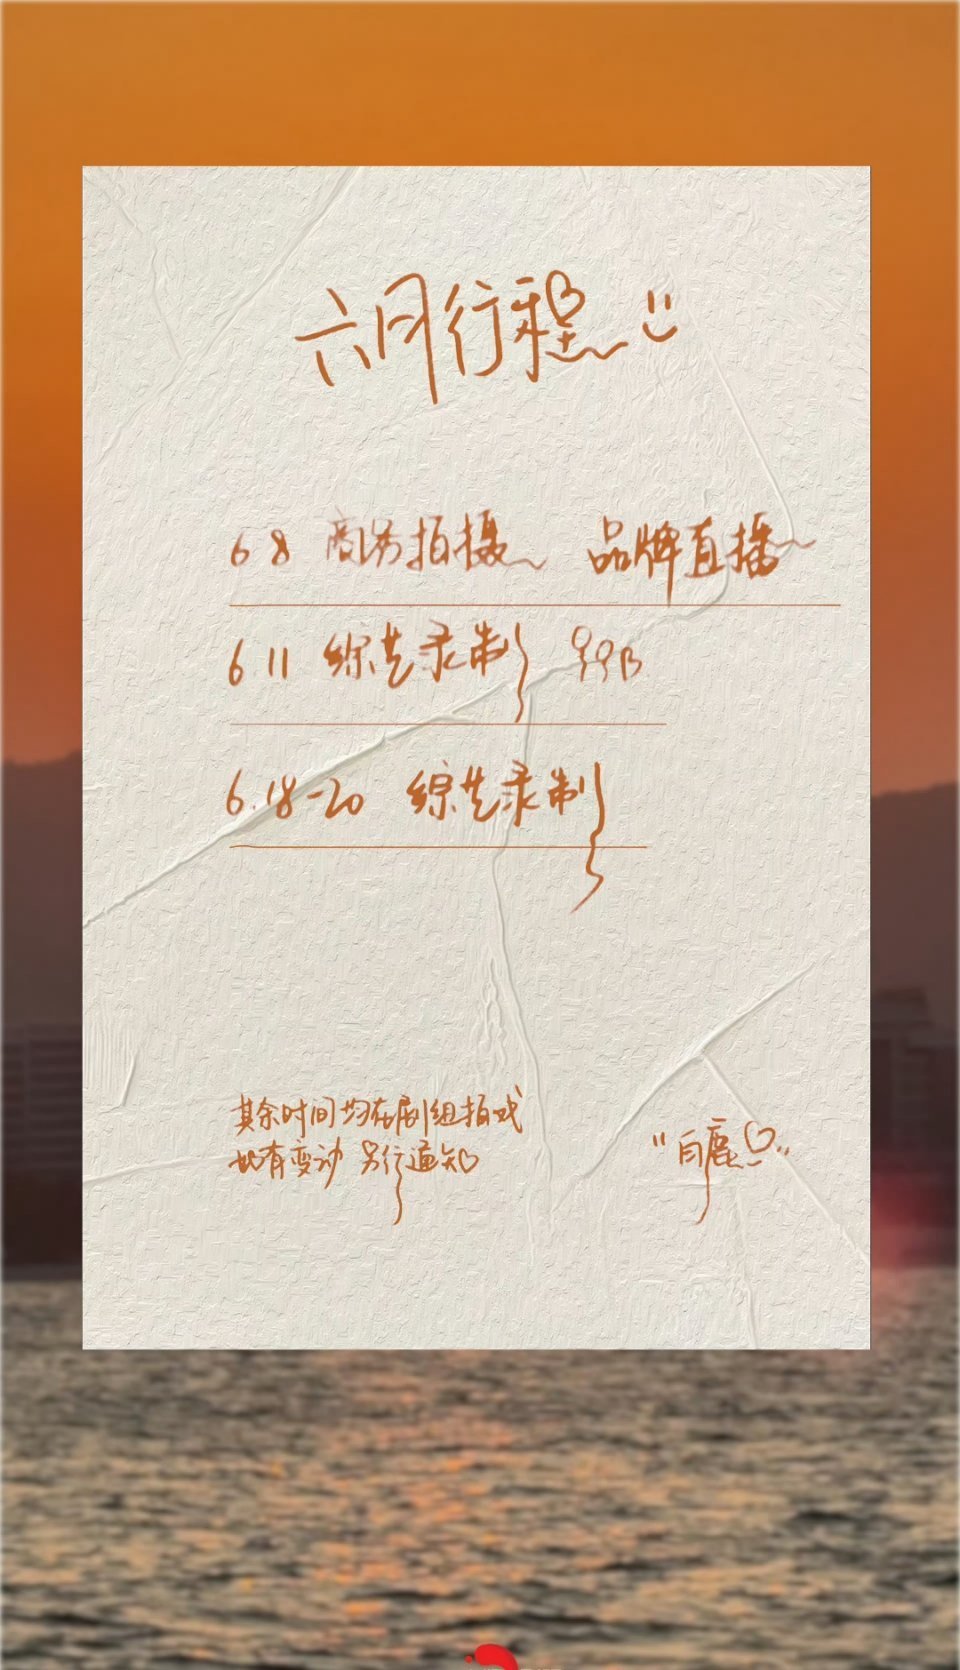 六月行程
6 8 商务拍摄 品牌直播
6.11 综艺录制 99B
6.18-20 综艺录制
其余时间均在剧组拍戏
如有变动 另行通知
"白鹿"